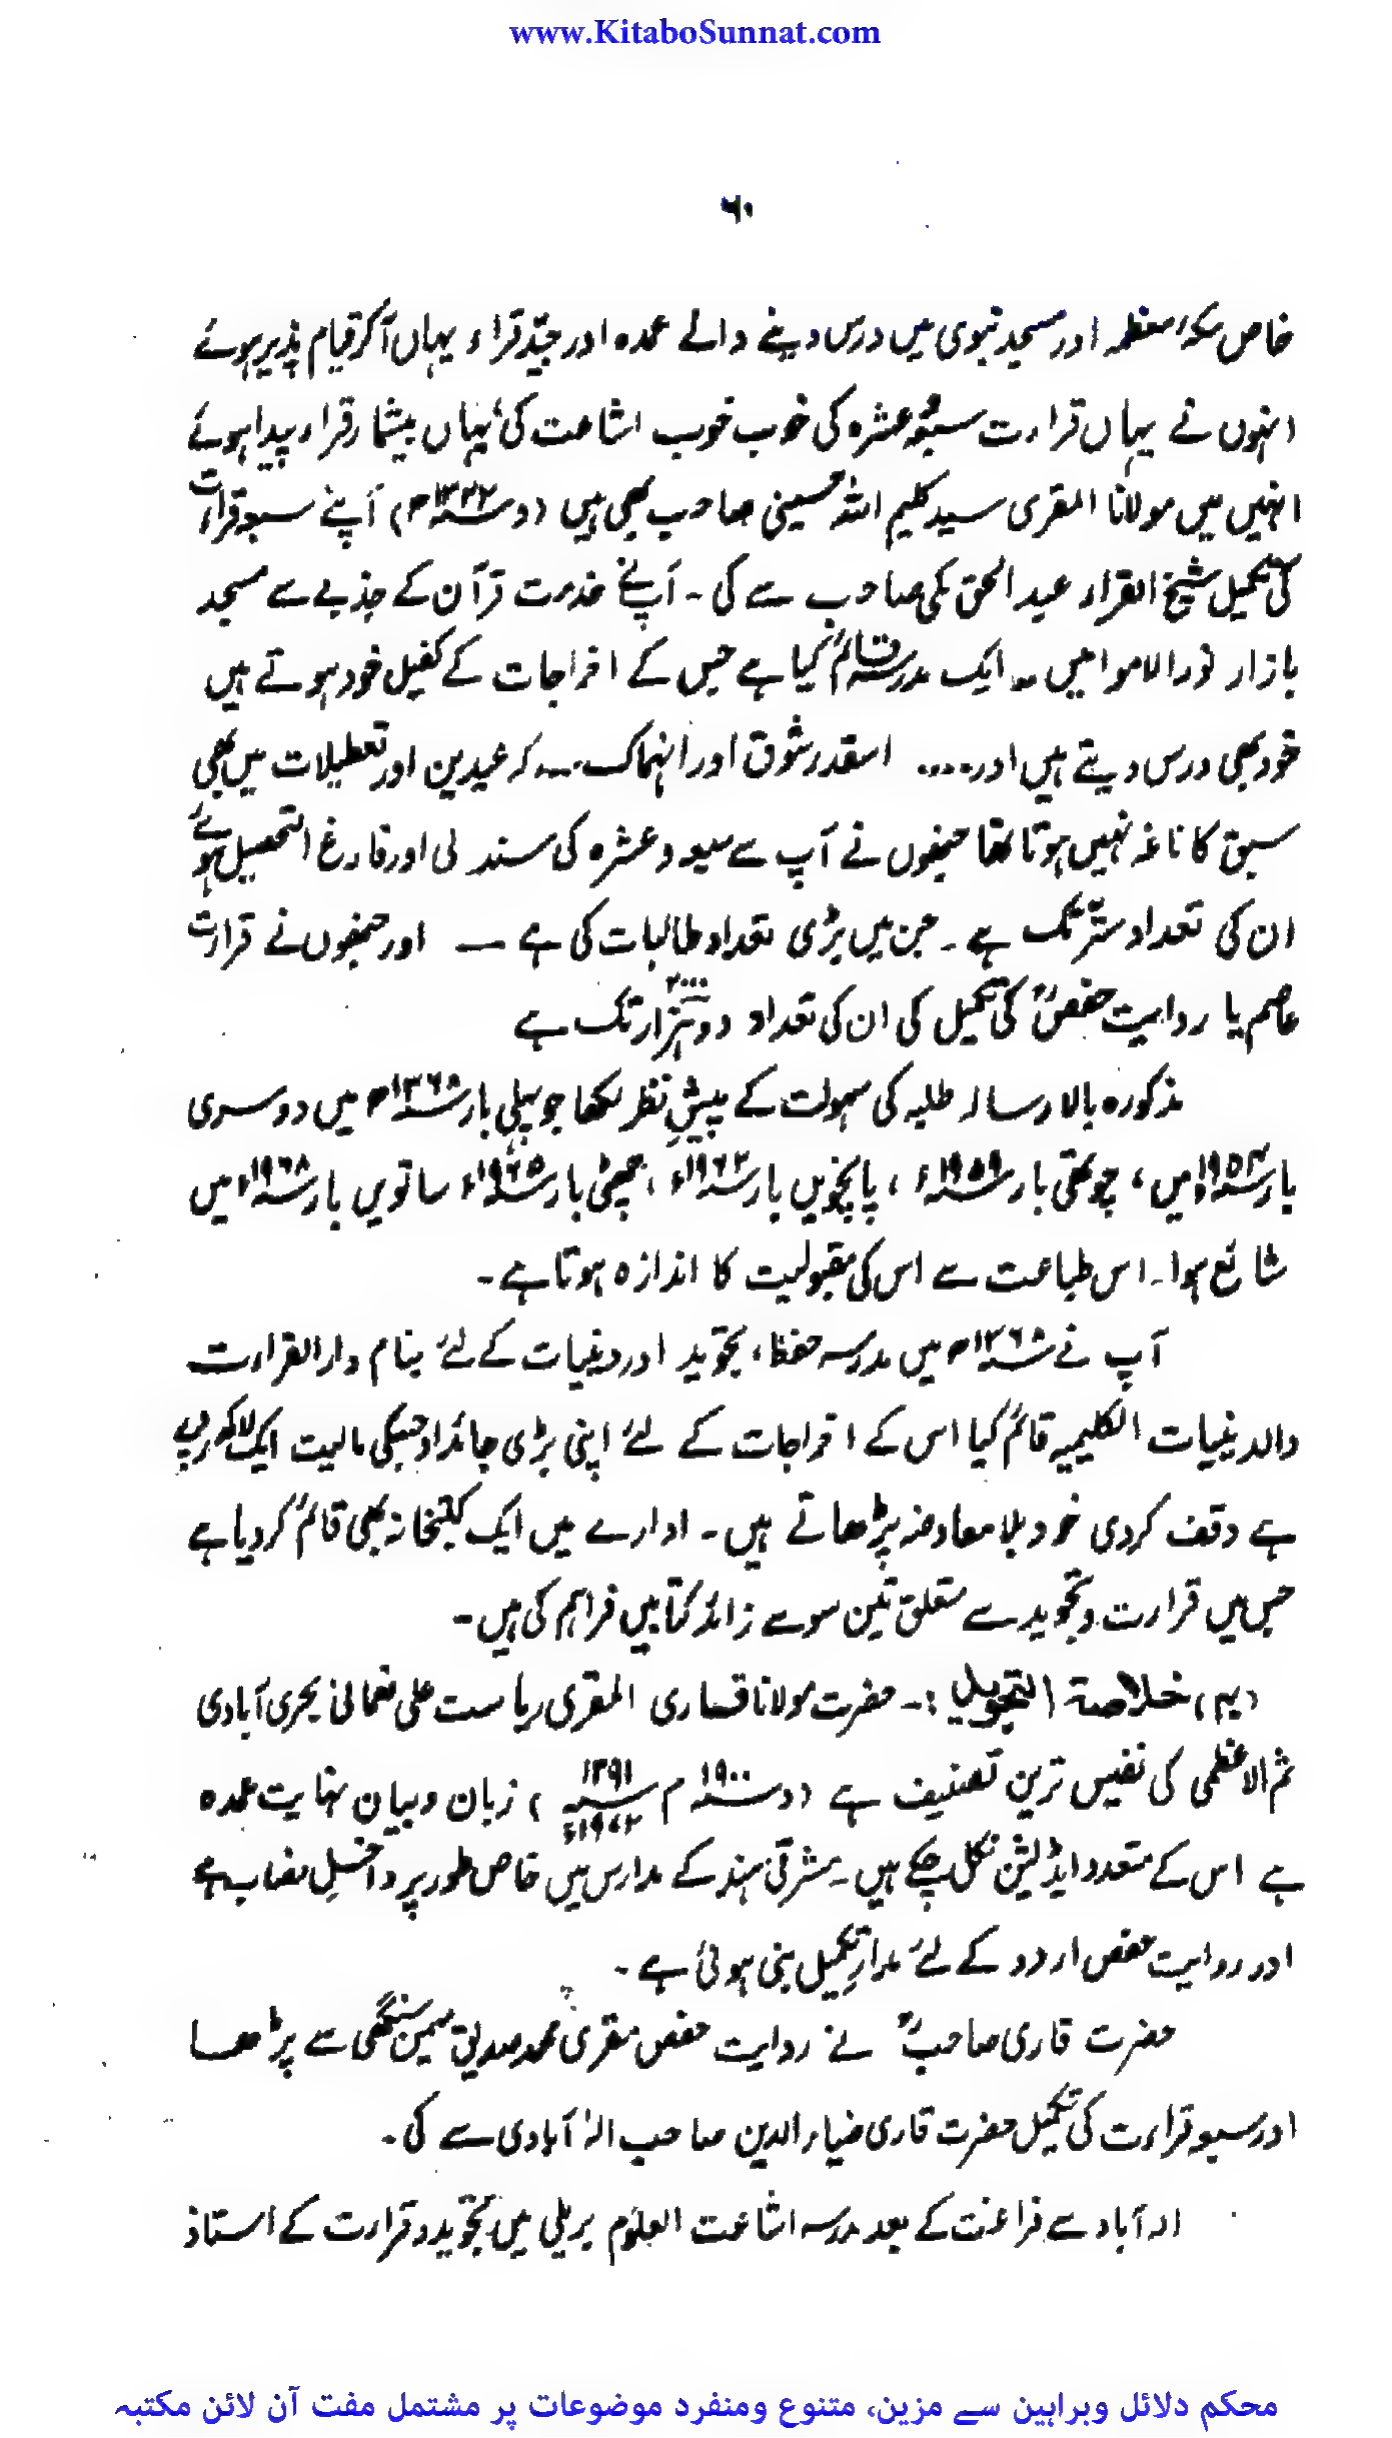 www.KitaboSunnat.com
۶۰
خاص مکہ معظمہ اور مسجد نبوی میں درس دینے والے عمدہ اور جیّد قراء یہاں آکر قیام پذیر ہوئے
انہوں نے یہاں قراءت سبعہ و عشرہ کی خوب خوب اشاعت کی یہاں بیشمار قراء پیدا ہوئے
انہیں میں مولانا المقری سید کلیم اللہ حسینی صاحب بھی ہیں (و ۱۳۲۲ھ) آپنے سبعہ قراءت
کی تکمیل شیخ القراء عبد الحق مکی صاحب سے کی ۔ آپنے خدمت قرآن کے جذبے سے مسجد
بازار نورالامرا میں ۔ ایک مدرسہ قائم کیا ہے جس کے اخراجات کے کفیل خود ہوتے ہیں
خود بھی درس دیتے ہیں اور .... اسقدر شوق اور انہماک ... کہ عیدین اور تعطیلات میں بھی
سبق کا ناغہ نہیں ہوتا تھا جنھوں نے آپ سے سبعہ و عشرہ کی سند لی اور فارغ التحصیل ہوئے
ان کی تعداد ستّر تک ہے ۔ جن میں بڑی تعداد طالبات کی ہے — اور جنھوں نے قرارت
عاصم یا روایت حفصؒ کی تکمیل کی ان کی تعداد دو ہزار ۲۰۰۰ تک ہے
مذکورہ بالا رسالہ طلبہ کی سہولت کے پیشِ نظر لکھا جو پہلی بار ۱۳۶۸ھ میں دوسری
بار ۱۹۵۳ء میں، چوتھی بار ۱۹۵۹ء ، پانچویں بار ۱۹۶۲ء ، چھٹی بار ۱۹۶۵ء ساتویں بار ۱۹۶۸ء میں
شائع ہوا ۔ اس طباعت سے اس کی مقبولیت کا اندازہ ہوتا ہے ۔
آپ نے ۱۳۶۸ھ میں مدرسہ حفظ، تجوید اور دینیات کے لئے بنام دارالقراءت
والدینیات الکلیمیہ قائم کیا اس کے اخراجات کے لئے اپنی بڑی جائداد جسکی مالیت ایک لاکھ روپے
ہے وقف کردی خود بلا معاوضہ پڑھاتے ہیں ۔ ادارے میں ایک کتبخانہ بھی قائم کردیا ہے
جس میں قرارت و تجوید سے متعلق تین سو سے زائد کتابیں فراہم کی ہیں ۔
خلاصۃ التجوید :۔ حضرت مولانا قاری المقری ریاست علی نعمانی بحری آبادی
ثم الاعظمی کی نفیس ترین تصنیف ہے (و ۱۹۰۰ م ۱۳۹۱ ۱۹۷۲ء) زبان و بیان نہایت عمدہ
ہے اس کے متعدد ایڈیشن نکل چکے ہیں ۔ مشرقی ہند کے مدارس میں خاص طور پر داخلِ نصاب ہے
اور روایت حفص اردو کے لئے مدارِ تکمیل بنی ہوئی ہے ۔
حضرت قاری صاحبؒ نے روایت حفص مقری محمد صدیق میمن سنگھی سے پڑھا
اور سبعہ قراءت کی تکمیل حضرت قاری ضیاء الدین صاحب الہٰ آبادی سے کی ۔
الہ آباد سے فراغت کے بعد مدرسہ اشاعت العلوم بریلی میں تجوید و قرارت کے استاذ
محکم دلائل وبراہین سے مزین، متنوع ومنفرد موضوعات پر مشتمل مفت آن لائن مکتبہ